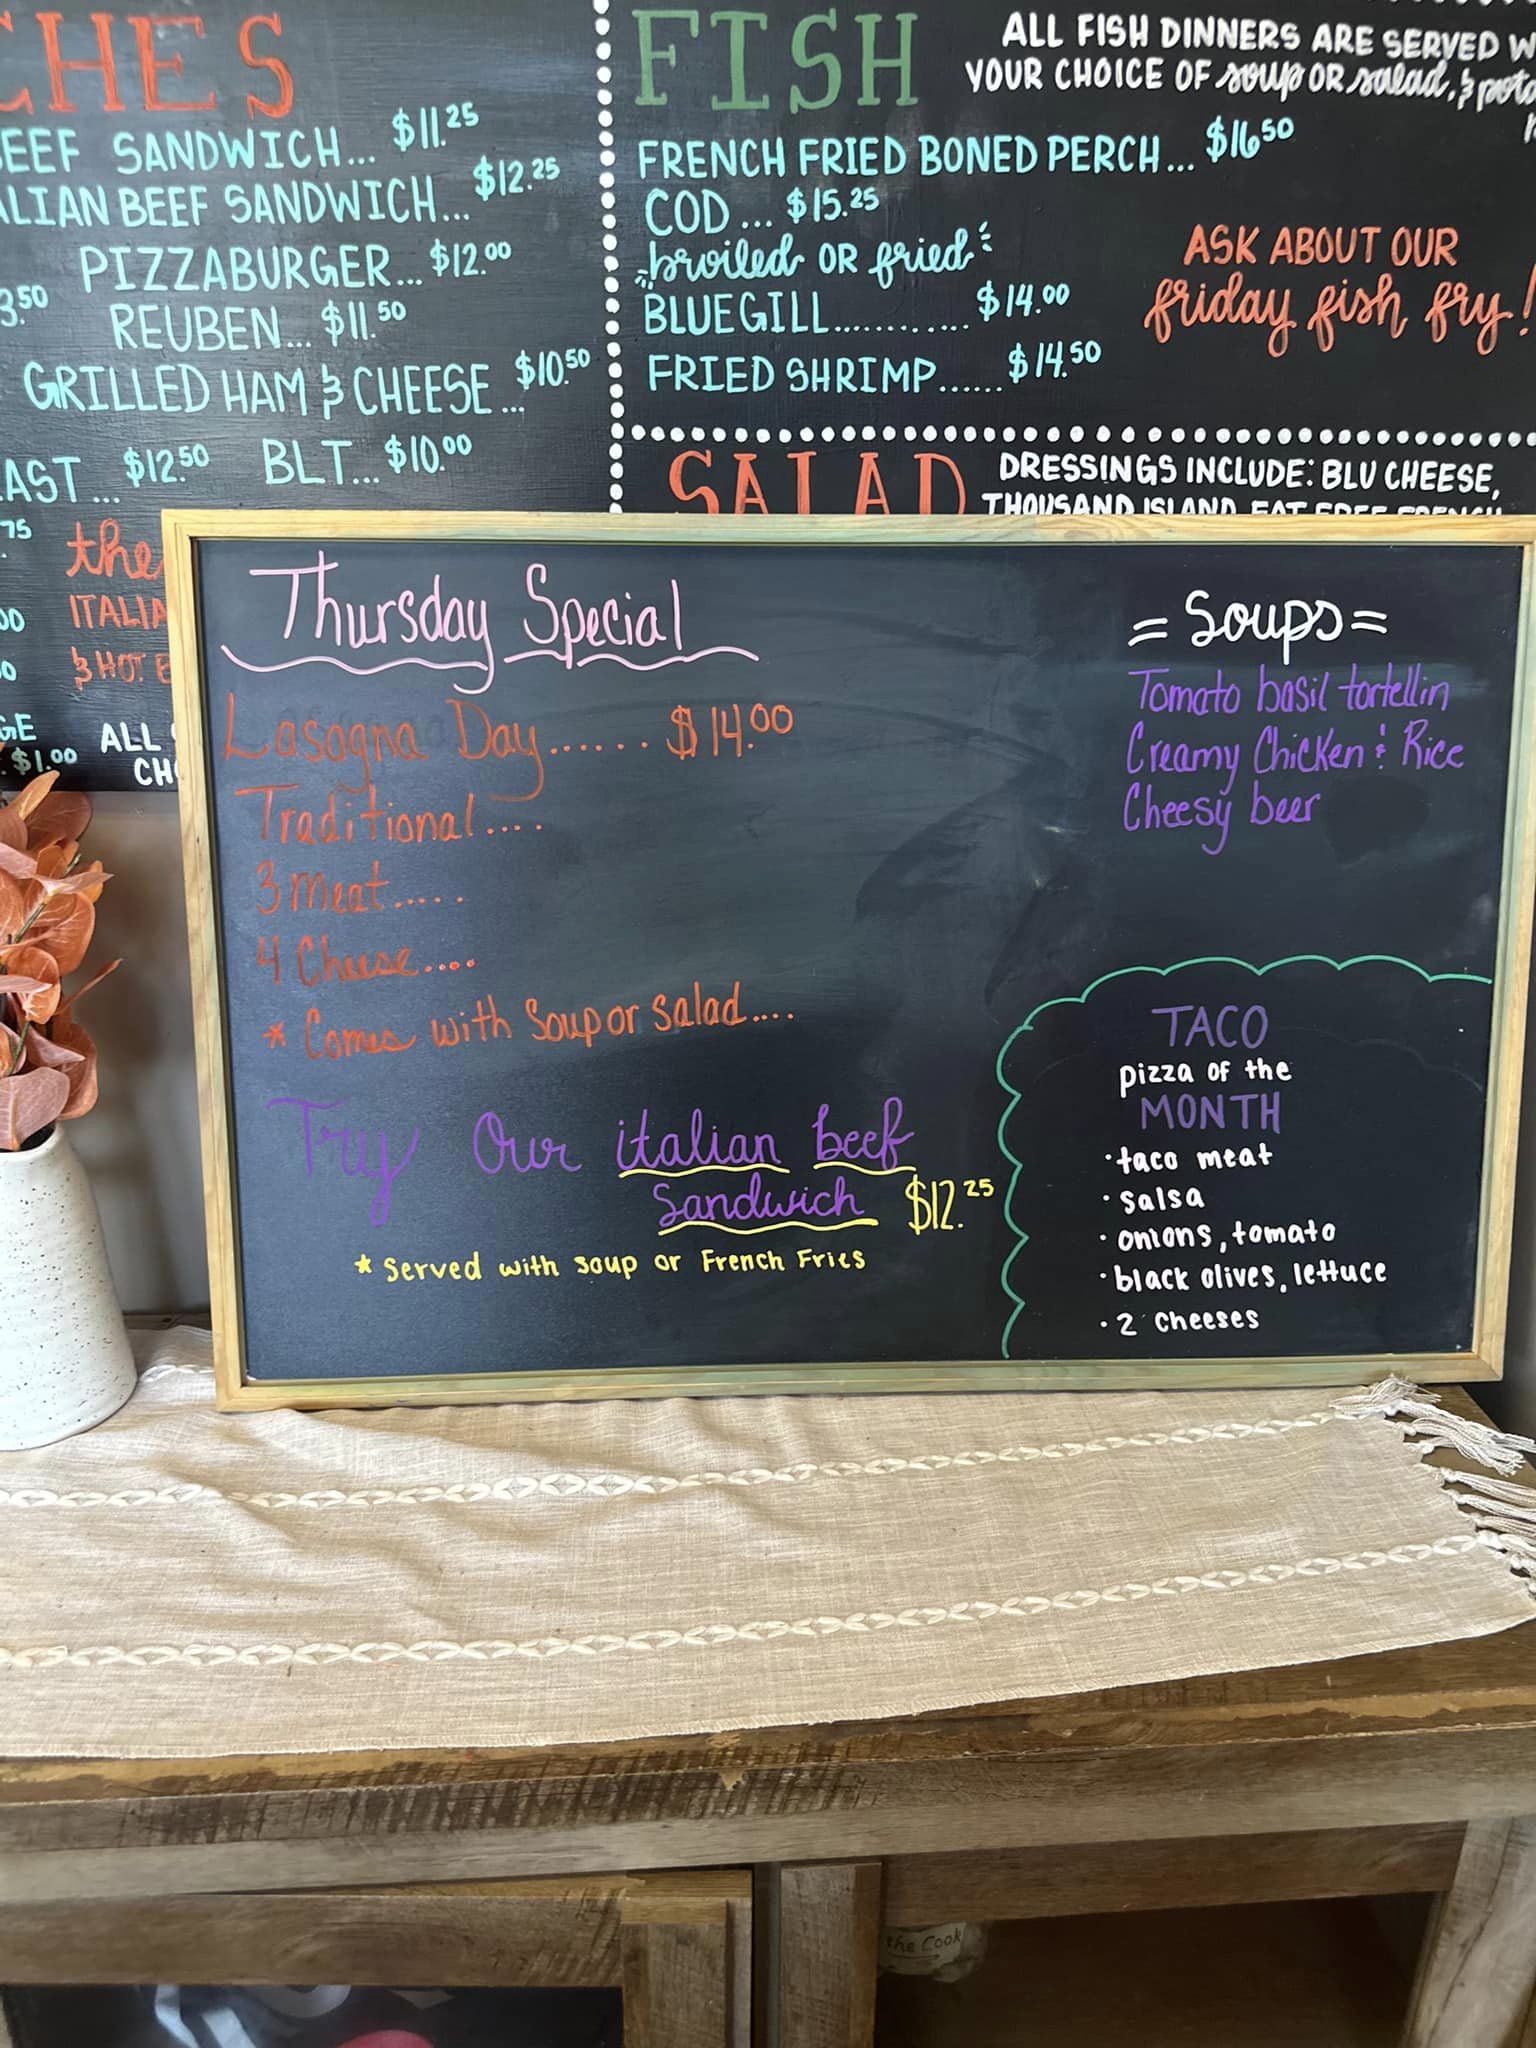 CHES
BEEF SANDWICH... $11.25
ALIAN BEEF SANDWICH... $12.25
PIZZABURGER... $12.00
3.50 REUBEN... $11.50
GRILLED HAM & CHEESE ... $10.50
AST... $12.50 BLT... $10.00
75 the
00 ITALIA
0 & HOT B
GE ALL
$1.00 CH
FISH
ALL FISH DINNERS ARE SERVED W
YOUR CHOICE OF soup OR salad, & pota
FRENCH FRIED BONED PERCH... $16.50
COD... $15.25
broiled OR fried
BLUEGILL........... $14.00
FRIED SHRIMP...... $14.50
ASK ABOUT OUR
friday fish fry!
SALAD
DRESSINGS INCLUDE: BLU CHEESE,
THOUSAND ISLAND, FAT FREE FRENCH,
Thursday Special
Lasagna Day...... $14.00
Traditional....
3 meat.....
4 Cheese....
* Comes with Soup or Salad....
Try Our italian beef
Sandwich $12.25
* Served with soup or French Fries
= Soups =
Tomato basil tortellin
Creamy Chicken & Rice
Cheesy beer
TACO
pizza of the
MONTH
• taco meat
• salsa
• onions, tomato
• black olives, lettuce
• 2 cheeses
the Cook